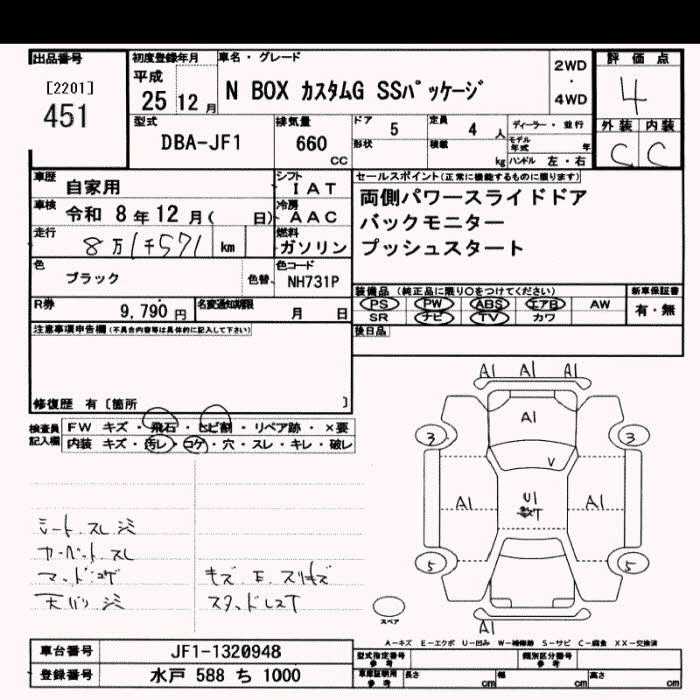 出品番号
[2201]
451
初度登録年月
平成
25 12 月
車名・グレード
N BOX カスタムG SSパッケージ
2WD
・
4WD
評価点
4
外装 内装
C C
型式
DBA-JF1
排気量
660
CC
ドア 5
定員 4 人
形状
積載 kg
ディーラー・並行
モデル年式 年
ハンドル 左・右
車歴 自家用
シフト
IAT
車検 令和 8 年 12 月( 日)
冷房
AAC
走行 8万1千571 km
燃料
ガソリン
色 ブラック
色替
色コード
NH731P
R券 9,790 円
名変通知期限 月 日
セールスポイント(正常に機能するものに限ります)
両側パワースライドドア
バックモニター
プッシュスタート
装備品(純正品に限り○をつけてください)
PS PW ABS エアB AW
SR ナビ TV カワ
新車保証書
有・無
後日品
注意事項申告欄(不具合内容等は具体的に記入して下さい)
修復歴 有〔箇所 〕
検査員記入欄
FW キズ・飛石・ヒビ割・リペア跡・×要
内装 キズ・汚レ・コゲ・穴・スレ・キレ・破レ
シート スレ
カーペット スレ
キズ E スリキズ
A1 A1 A1
A1
3 3
V
A1 U1 A1
5 5
スペア
A1
A-キズ E-エクボ U-凹み W-補修跡 S-サビ C-腐食 XX-交換済
車台番号 JF1-1320948
登録番号 水戸 588 ち 1000
型式指定番号
参考
類別区分番号
参考
車庫証明用
参考
長さ cm
幅 cm
高さ cm